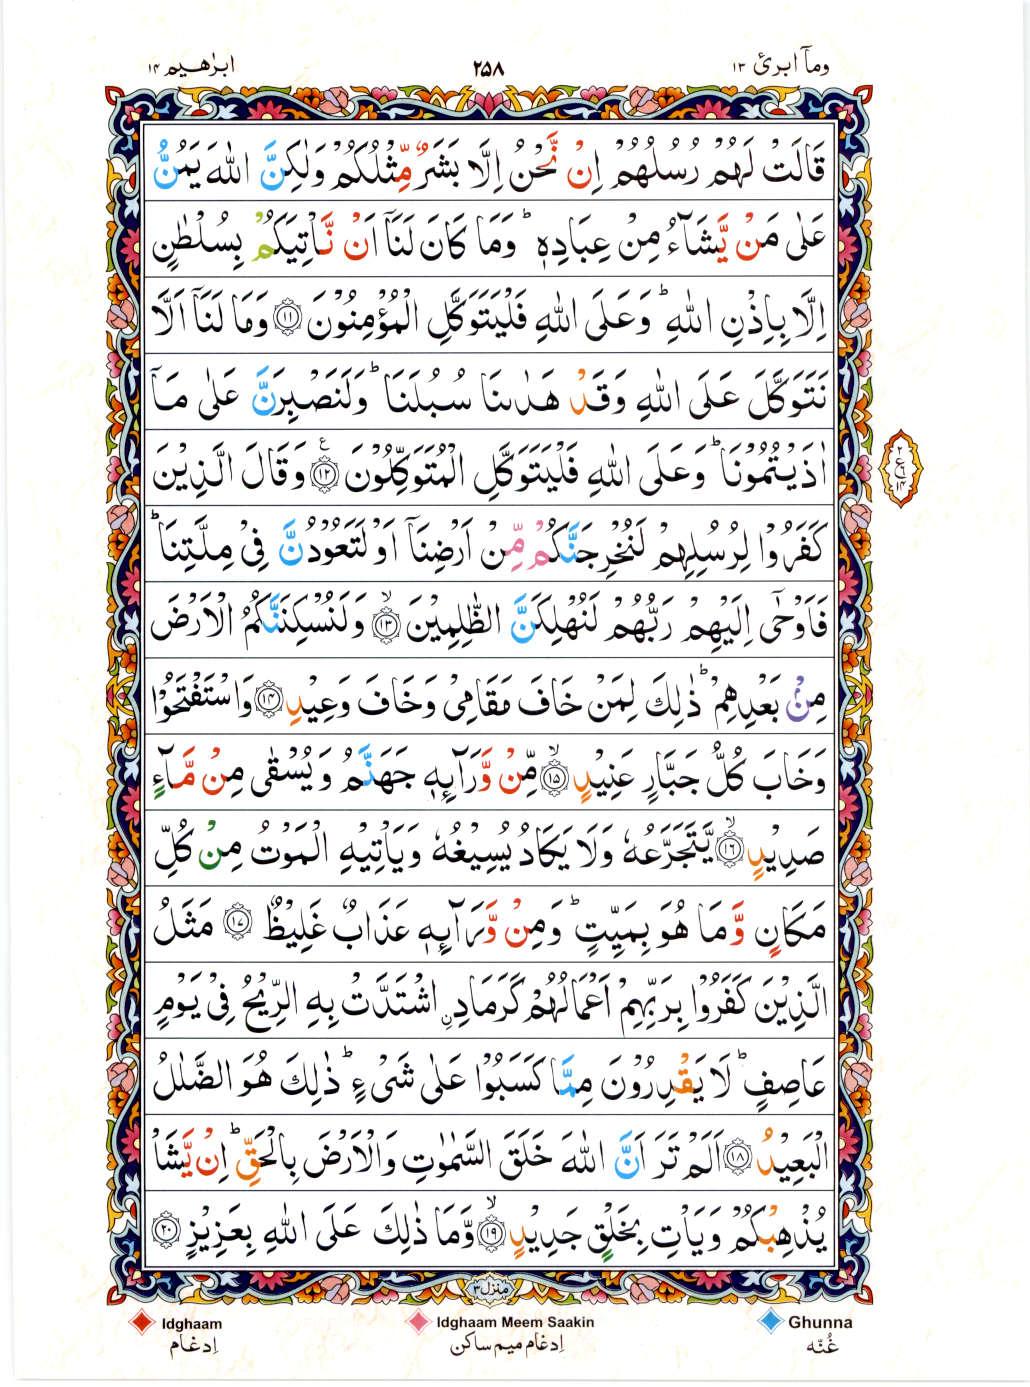 ابرٰهيم ١٤
٢٥٨
ومآ ابرئ ١٣
قَالَتْ لَهُمْ رُسُلُهُمْ اِنْ نَّحْنُ اِلَّا بَشَرٌ مِّثْلُكُمْ وَلٰكِنَّ اللّٰهَ يَمُنُّ
عَلٰى مَنْ يَّشَآءُ مِنْ عِبَادِهٖ ؕ وَمَا كَانَ لَنَآ اَنْ نَّاْتِيَكُمْ بِسُلْطٰنٍ
اِلَّا بِاِذْنِ اللّٰهِ ؕ وَعَلَى اللّٰهِ فَلْيَتَوَكَّلِ الْمُؤْمِنُوْنَ ﴿١١﴾ وَمَا لَنَآ اَلَّا
نَتَوَكَّلَ عَلَى اللّٰهِ وَقَدْ هَدٰىنَا سُبُلَنَا ؕ وَلَنَصْبِرَنَّ عَلٰى مَآ
اٰذَيْتُمُوْنَا ؕ وَعَلَى اللّٰهِ فَلْيَتَوَكَّلِ الْمُتَوَكِّلُوْنَ ﴿١٢﴾ ع وَقَالَ الَّذِيْنَ
كَفَرُوْا لِرُسُلِهِمْ لَنُخْرِجَنَّكُمْ مِّنْ اَرْضِنَآ اَوْ لَتَعُوْدُنَّ فِىْ مِلَّتِنَا ؕ
فَاَوْحٰٓى اِلَيْهِمْ رَبُّهُمْ لَنُهْلِكَنَّ الظّٰلِمِيْنَ ۙ ﴿١٣﴾ وَلَنُسْكِنَنَّكُمُ الْاَرْضَ
مِنْ بَعْدِهِمْ ؕ ذٰلِكَ لِمَنْ خَافَ مَقَامِىْ وَخَافَ وَعِيْدِ ﴿١٤﴾ وَاسْتَفْتَحُوْا
وَخَابَ كُلُّ جَبَّارٍ عَنِيْدٍ ۙ ﴿١٥﴾ مِّنْ وَّرَآئِهٖ جَهَنَّمُ وَيُسْقٰى مِنْ مَّآءٍ
صَدِيْدٍ ۙ ﴿١٦﴾ يَّتَجَرَّعُهٗ وَلَا يَكَادُ يُسِيْغُهٗ وَيَاْتِيْهِ الْمَوْتُ مِنْ كُلِّ
مَكَانٍ وَّمَا هُوَ بِمَيِّتٍ ؕ وَمِنْ وَّرَآئِهٖ عَذَابٌ غَلِيْظٌ ﴿١٧﴾ مَثَلُ
الَّذِيْنَ كَفَرُوْا بِرَبِّهِمْ اَعْمَالُهُمْ كَرَمَادِ ۨ اشْتَدَّتْ بِهِ الرِّيْحُ فِىْ يَوْمٍ
عَاصِفٍ ؕ لَا يَقْدِرُوْنَ مِمَّا كَسَبُوْا عَلٰى شَىْءٍ ؕ ذٰلِكَ هُوَ الضَّلٰلُ
الْبَعِيْدُ ﴿١٨﴾ اَلَمْ تَرَ اَنَّ اللّٰهَ خَلَقَ السَّمٰوٰتِ وَالْاَرْضَ بِالْحَقِّ ؕ اِنْ يَّشَاْ
يُذْهِبْكُمْ وَيَاْتِ بِخَلْقٍ جَدِيْدٍ ۙ ﴿١٩﴾ وَّمَا ذٰلِكَ عَلَى اللّٰهِ بِعَزِيْزٍ ﴿٢٠﴾
منزل ٣
Idghaam
Idghaam Meem Saakin
Ghunna
اِدغام
اِدغام میم ساکن
غُنّه